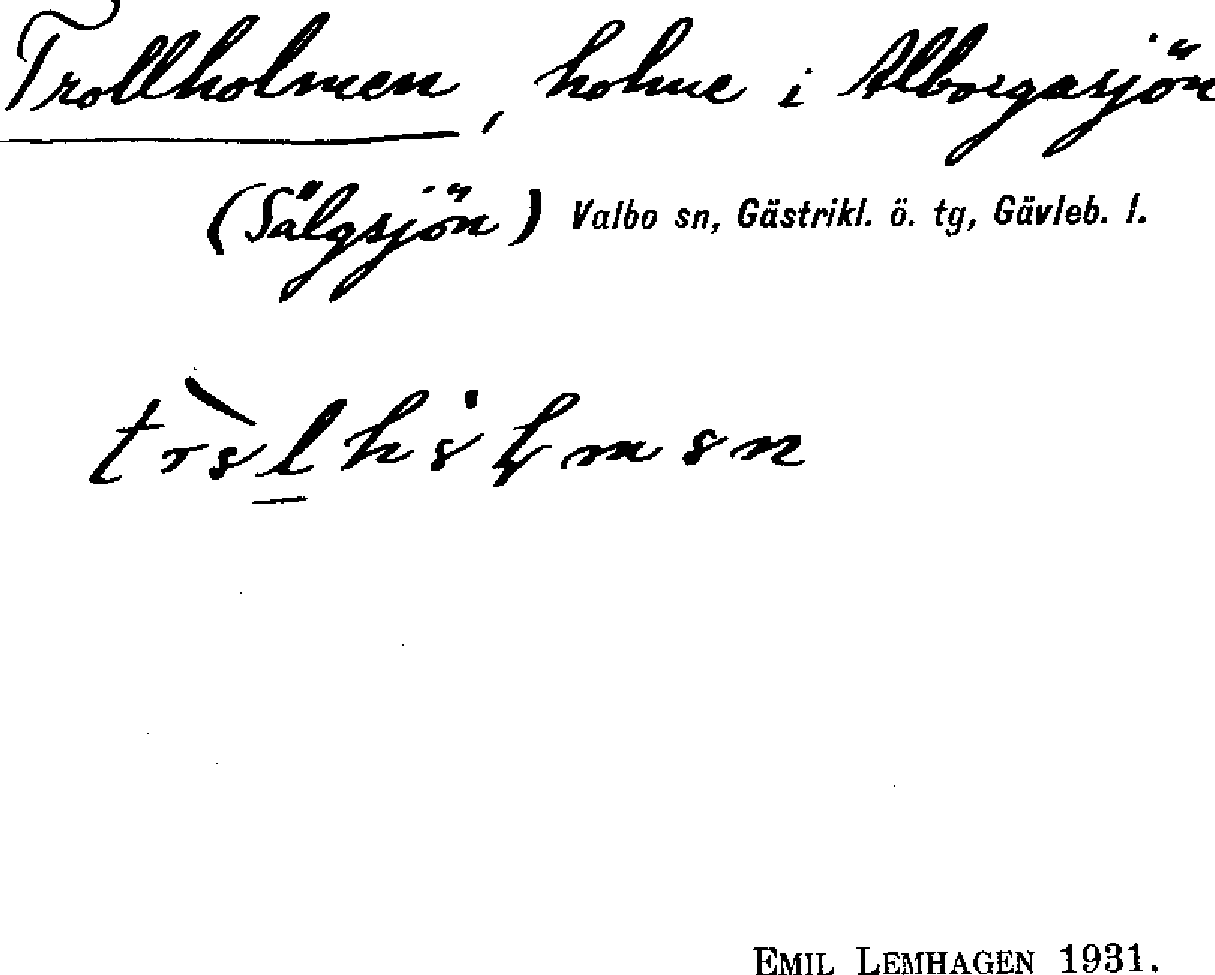 Trollholmen, holme i Alborgasjön
(Sälgsjön) Valbo sn, Gästrikl. ö. tg, Gävleb. l.
EMIL LEMHAGEN 1931.